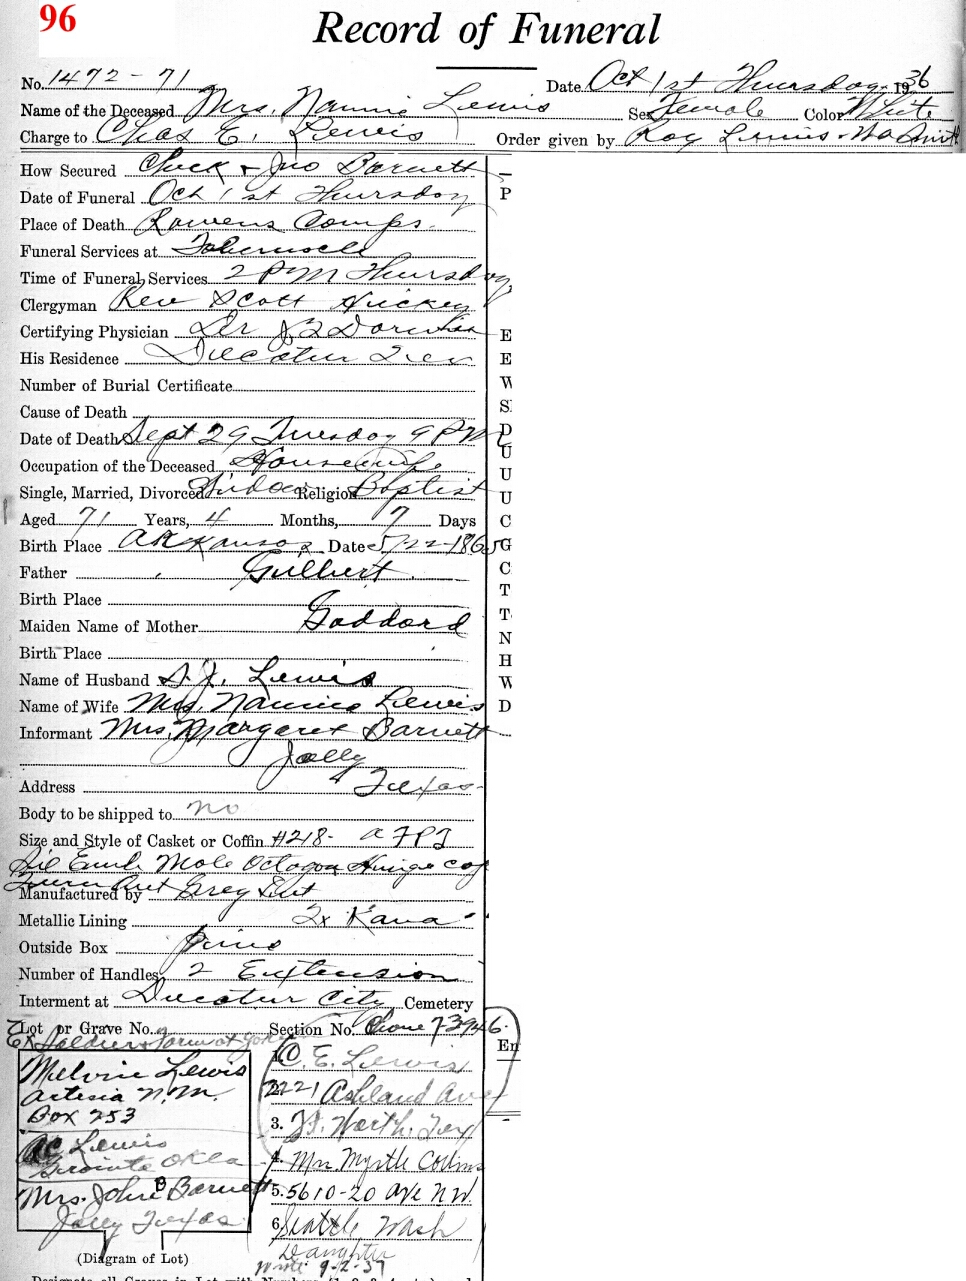 96
Record of Funeral
No. 1472-71 Date Oct 1st Thursday 1936
Name of the Deceased Mrs. Nannie Lewis Sex Female Color White
Charge to Chas E. Lewis Order given by Roy Lewis
How Secured Check + Jno Barnett
P
Date of Funeral Oct 1st Thursday
Place of Death Camps.
Funeral Services at Tabernacle
Time of Funeral Services 2 PM Thursday
Clergyman Rev Scott Hickey
Certifying Physician Dr
E
His Residence Decatur Tex
E
Number of Burial Certificate
W
Cause of Death
S
Date of Death Sept 29 Tuesday 9 PM
D
U
Occupation of the Deceased Housewife
U
Single, Married, Divorced Widow Religion Baptist
U
Aged 71 Years, 4 Months, 7 Days
C
Birth Place Arkansas Date 5/22-1865
G
Father Gilbert
C
Birth Place
T
Maiden Name of Mother Goddard
T
N
Birth Place
H
Name of Husband S.J. Lewis
W
Name of Wife Mrs. Nannie Lewis
D
Informant Mrs. Margaret Barnett
Jolly
Address Texas
Body to be shipped to no
Size and Style of Casket or Coffin #218-
Sil Emb Mole Octagon Hinge cap
Manufactured by
Metallic Lining
Outside Box Pine
Number of Handles 2 Extension
Interment at Decatur City Cemetery
Lot or Grave No. Section No. Phone 73946
En
Ex Soldier
1. C. E. Lewis
Melvin Lewis
2. 2221 Ashland Ave
Artesia N.M.
Box 753
3. Ft. Worth. Tex
AC Lewis
Granite Okla
4. Mrs Myrtle Collins
Mrs. John B Barnett
5. 5610-20 Ave NW
Jolly Texas
6. Seattle, Wash
Daughter
(Diagram of Lot)
Wrote 9-2-37
Designate all Graves in Lot with Numbers